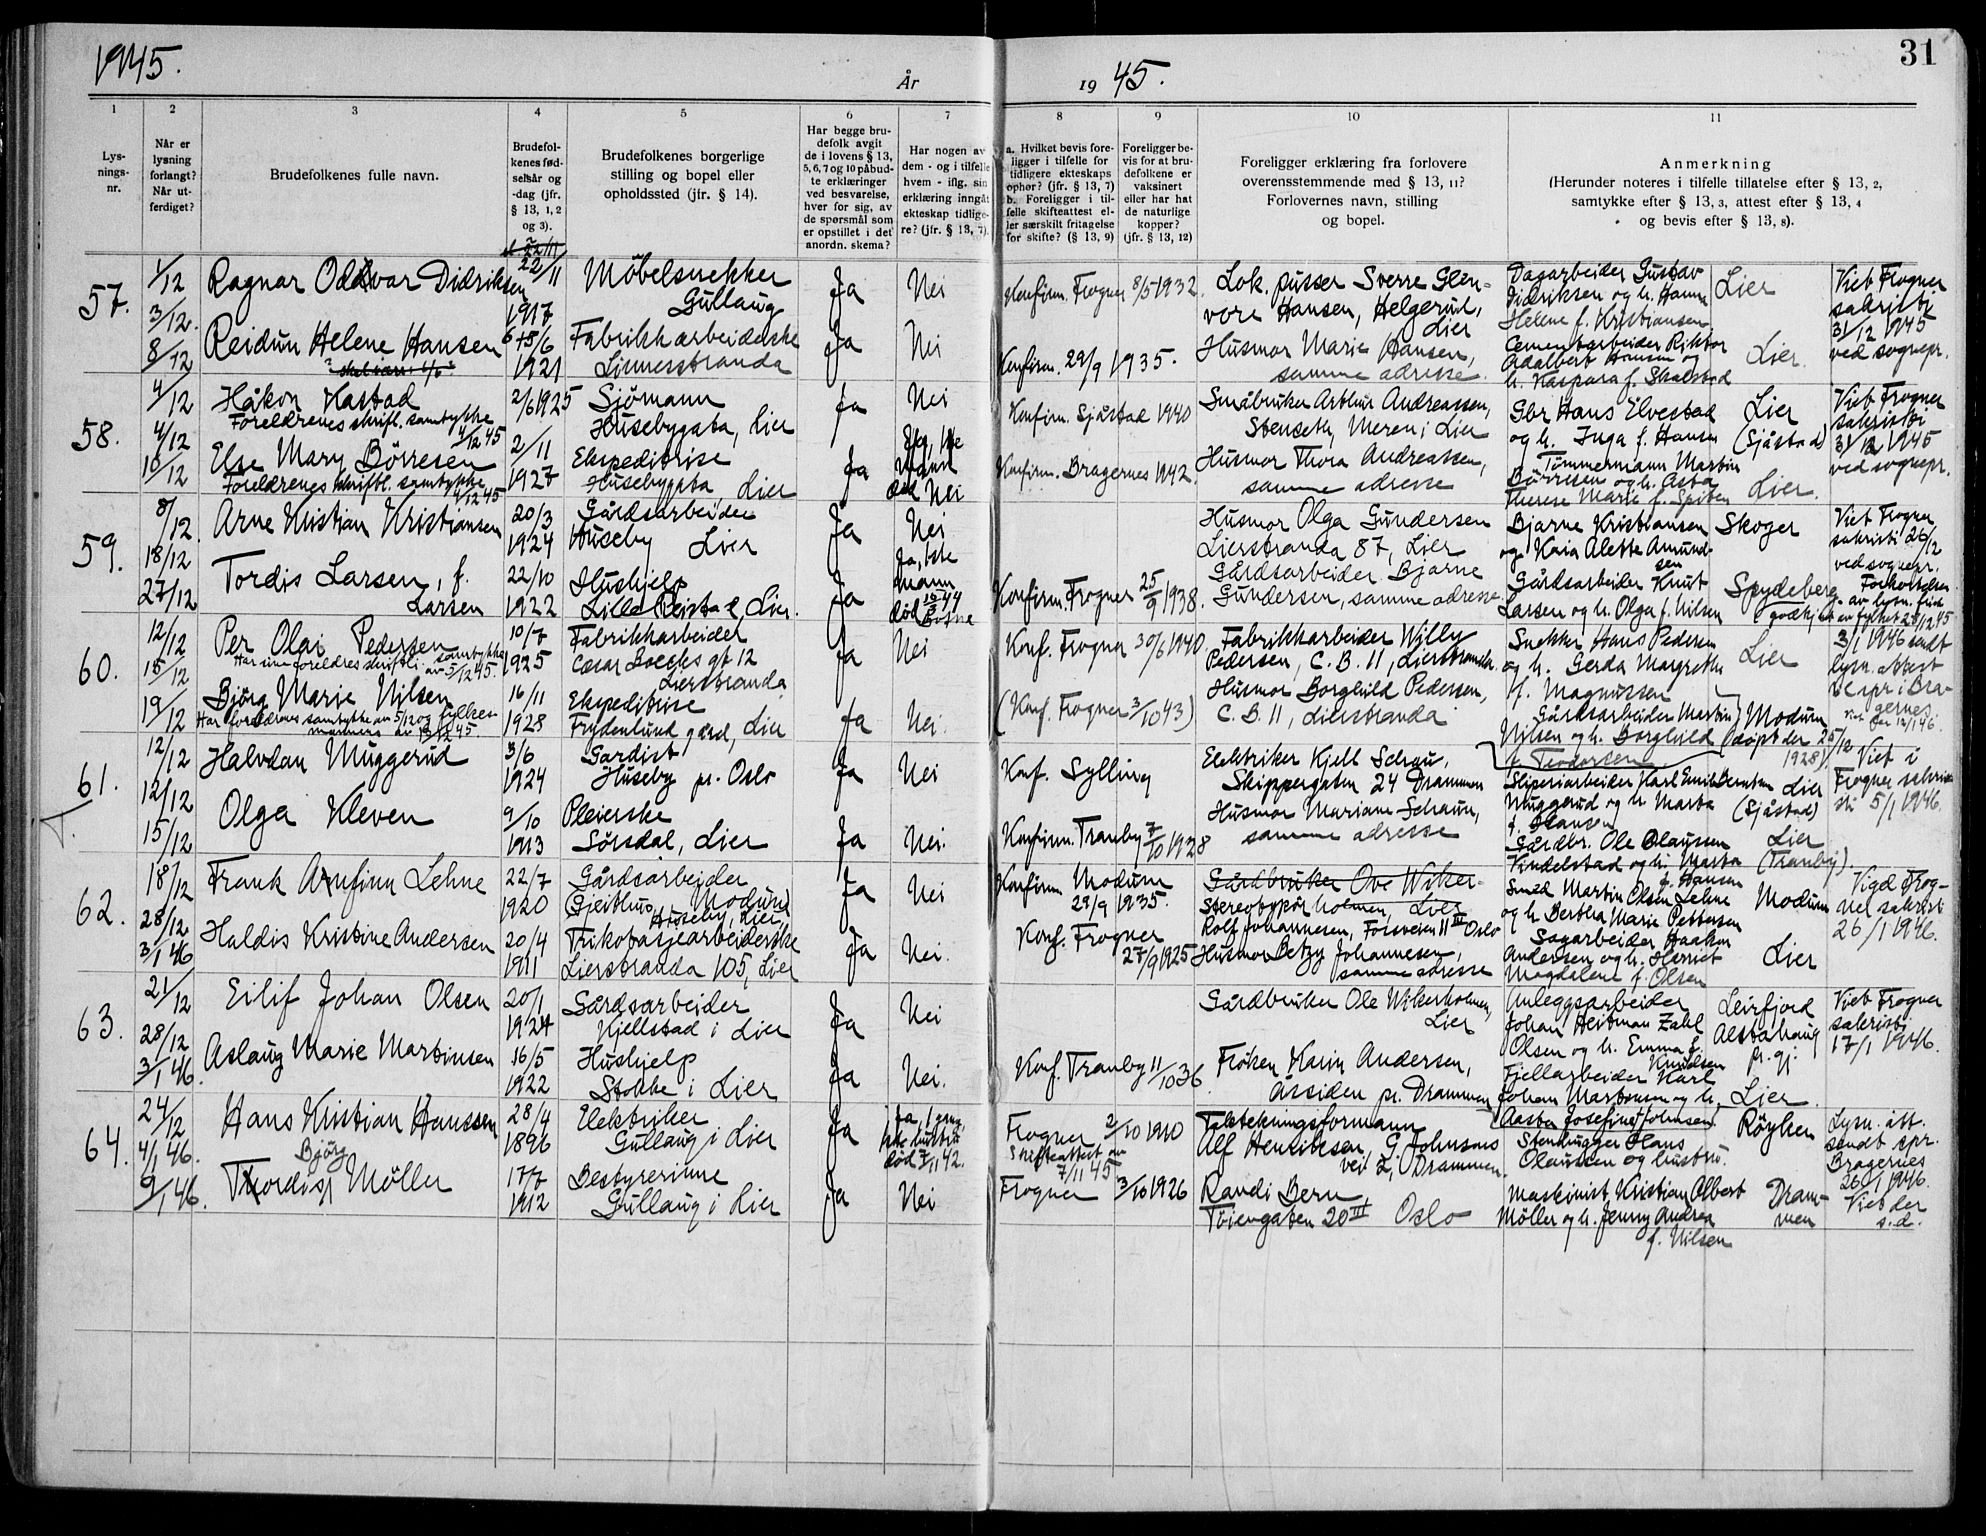 1945.
År
19 45.
31
1
2
3
4
5
6
7
8
9
10
11
Lys-
nings-
nr.
Når er
lysning
forlangt?
Når ut-
ferdiget?
Brudefolkenes fulle navn.
Brudefol-
kenes fød-
selsår og
-dag (jfr.
§ 13, 1, 2
og 3).
Brudefolkenes borgerlige
stilling og bopel eller
opholdssted (jfr. § 14).
Har begge bru-
defolk avgit
de i lovens § 13,
5, 6, 7 og 10 påbud-
te erklæringer
ved besvarelse,
hver for sig, av
de spørsmål som
er opstillet i det
anordn. skema?
Har nogen av
dem - og i tilfelle
hvem - iflg. sin
erklæring inngåt
ekteskap tidlige-
re? (jfr. § 13, 7).
a. Hvilket bevis fore-
ligger i tilfelle for
tidligere ekteskaps
ophør? (jfr. § 13, 7)
b. Foreligger i til-
felle skifteattest el-
ler særskilt fritagelse
for skifte? (§ 13, 9)
Foreligger be-
vis for at bru-
defolkene er
vaksinert
eller har hat
de naturlige
kopper?
(jfr. § 13, 12)
Foreligger erklæring fra forlovere
overensstemmende med § 13, 11?
Forlovernes navn, stilling
og bopel.
Anmerkning
(Herunder noteres i tilfelle tillatelse efter § 13, 2,
samtykke efter § 13, 3, attest efter § 13, 4
og bevis efter § 13, 8).
57.
1/12
3/12.
8/12
Ragnar Oddvar Didriksen
22/11
1917
Møbelsnekker
Gullaug
Ja
Nei
Konfirm. Frogner 8/5 1932.
Lok. pusser Sverre Glen-
vore Hansen, Helgerud,
Lier
Dagarbeider Gustav
Didriksen og h. Hanna
Helene f. Kristiansen
Lier
Viet Frogner
sakristi
31/12 1945
ved sognepr.
Reidun Helene Hansen
15/6
1921
Fabrikkarbeiderske
Linnesstranda
Ja
Nei
Konfirm. 29/9 1935.
Husmor Marie Hansen,
samme adresse.
Cementarbeider Riktor
Adalbert Hansen og
h. Kaspara f. Skalstad
Lier.
58.
4/12
4/12
10/12
Håkon Kastad
Foreldrenes skriftl. samtykke
1/12 45
2/6 1925
Sjömann
Husebygata, Lier
Ja
Nei
Konfirm. Sjåstad 1940
Småbruker Arthur Andreassen,
Stenseth, Meren i Lier
Gbr Hans Elvestad
og h. Inga f. Hansen
Lier
(Sjåstad)
Viet Frogner
sakristi
31/12 1945
ved sognepr.
Else Mary Börresen
Foreldrenes skriftl. samtykke
4/12 45
2/11
1927
Ekspeditrise
Husebygata, Lier
Ja
Nei
Konfirm. Bragernes 1942.
Husmor Thora Andreassen,
samme adresse
Tömmermann Martin
Börresen og h. Asta
Therese Marie f. Spiten
Lier.
59.
8/12
18/12
27/12
Arne Kristian Kristiansen
20/3
1924
Gårdsarbeider
Huseby Lier
Ja
Nei
Husmor Olga Gundersen
Lierstranda 87, Lier
Bjarne Kristiansen
og Kaia Alette Amund-
sen
Skoger
Viet Frogner
sakristi 26/12
ved sognepr.
Tordis Larsen, f.
Larsen
22/10
1922
Hushjelp
Lille Reistad, Lier.
Ja
Ja, 1ste
mann
död
Konfirm. Frogner 25/9 1938.
Gårdsarbeider Bjarne
Gundersen, samme adresse
Gårdsarbeider Knut
Larsen og h. Olga f. Nilsen
Spydeberg
Forkortelsen
av lysn. frist
godkjent av fylket 28/12 45
60.
12/12
15/12
19/12
Per Olai Pedersen
Har sine foreldres skriftli. samtykke
av 5/12 45.
10/7
1925
Fabrikkarbeider
Cæsar Boecks gt 12
Lierstranda
Ja
Nei
Konf. Frogner 30/6 1940
Fabrikkarbeider Willy
Pedersen, C. B. 11, Lierstranda.
Snekker Hans Pedersen
og h. Gerda Margrethe
f. Magnussen
Lier
3/1 1946 sendt
lysn. attest
Bra-
gernes
Björg Marie Nilsen
Har foreldrenes samtykke av 5/12 og fylkes-
mannens av 13/12 45.
16/11
1928
Ekspeditrise
Frydenlund gård, Lier
Ja
Nei.
(Konf. Frogner 3/10 43)
Husmor Borghild Pedersen,
C. B. 11, Lierstranda
Gårdsarbeider Martin
Nilsen og h. Borghild
f. Teodorsen
Modum
(döpt der 25/12
1928)
61.
12/12
12/12
15/12
Halvdan Muggerud
3/6
1924
Gardist
Huseby pr. Oslo
Ja
Nei
Konf. Sylling
Elektriker Kjell Schau,
Skippergaten 24 Drammen
Sliperiarbeider Karl Emil Berntsen
Muggerud og h. Marta
f. Hansen
Lier
(Sjåstad)
Viet i
Frogner sakri-
sti 5/1 1946.
Olga Kleven
9/10
1913
Pleierske
Sörsdal, Lier
Ja
Nei.
Konfirm. Tranby 7/10 1928
Husmor Mariane Schau,
samme adresse
Gårdbr. Ole Olaussen
Vindelstad og h. Marta
f. Hansen
Lier
(Tranby).
62.
18/12
28/12
3/1 46
Frank Arnfinn Lehne
22/7
1920
Gårdsarbeider
Gjeithus, Modum
Huseby, Lier,
Ja
Nei
Konfirm. Modum
29/9 1935.
Gårdbruker Ove Wiker-
holmen, Lier
Stereotypör
Rolf Johannesen, Fossveien 11 III Oslo
Smed Martin Olsen Lehne
og h. Bertha Marie Pettersen
Modum
Vigd Frog-
ner sakristi
26/1 1946.
Haldis Kristine Andersen
20/4
1911
Trikotasjearbeiderske
Lierstranda 105, Lier
Ja
Nei.
Konf. Frogner
27/9 1925
Husmor Betzy Johannesen,
samme adresse
Sagarbeider Haakon
Andersen og h. Harriet
Magdalene f. Olsen
Lier
63.
21/12
28/12
3/1 46.
Eilif Johan Olsen
20/1
1924
Gårdsarbeider
Kjellstad i Lier
Ja
Nei
Gårdbruker Ole Wikerholmen,
Lier
Anleggsarbeider
Johan Heitman Zahl
Olsen og h. Emma f.
Knudsen
Leirfjord
Alstahaug
pr. gj.
Viet Frogner
sakristi
17/1 1946.
Aslaug Marie Martinsen
16/5
1922
Hushjelp
Stokke i Lier
Ja
Nei.
Konf. Tranby 11/10 36
Fröken Karin Andersen,
Assiden pr. Drammen
Fjellarbeider Karl
Johan Martinsen og h.
Aasta Josefine f. Johnsen
Lier.
64.
24/12
4/1 46.
9/1 46.
Hans Kristian Hanssen
28/4
1896
Elektriker
Gullaug i Lier
Ja
Ja, 1 gang,
hustru
död 7/11 42.
Frogner 2/10 1910
Skifteattest av
7/11 45
Takstekningsformann
Alf Henriksen, G. Johnsens
vei 2, Drammen.
Stenhugger Hans
Olaussen og hustru.
Röyken
Lysn. att.
sendt spr.
Bragernes
26/1 1946.
Viet der
s.d.
Björg
Thordis Möller
17/7
1912
Bestyrerinne
Gullaug i Lier
Ja
Nei
Frogner 3/10 1926
Randi Bern,
Töiengaten 20 III Oslo
Maskinist Kristian Albert
Möller og h. Jenny Andrea
f. Nilsen
Dram-
men